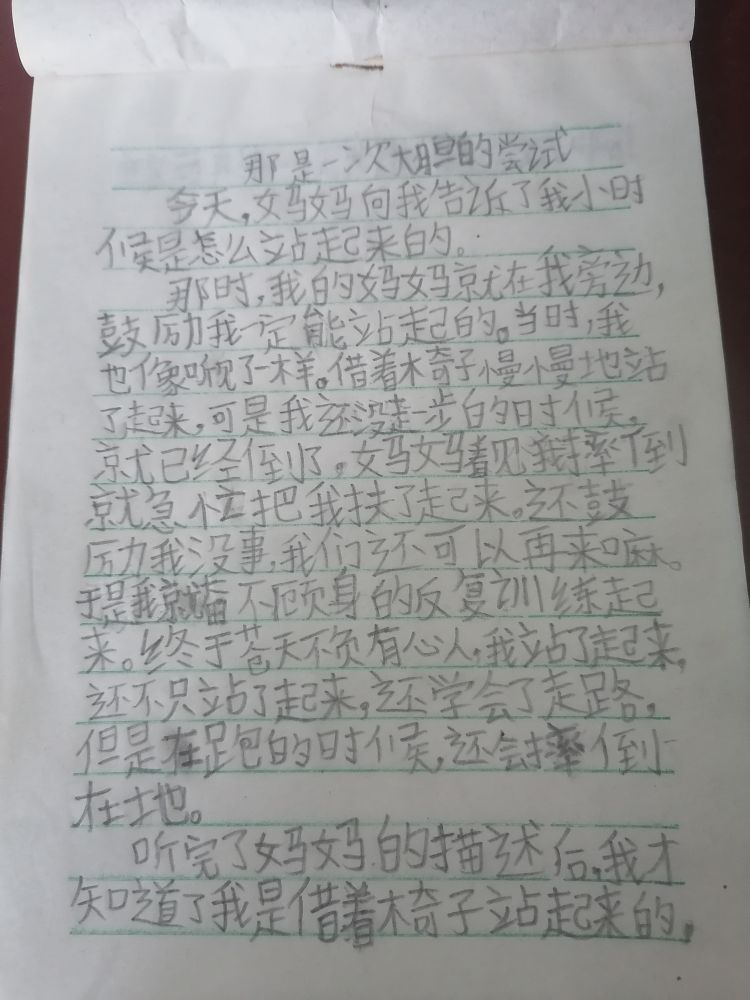 那是一次大胆的尝试
今天,妈妈向我告诉了我小时
候是怎么站起来的。
那时,我的妈妈就在我旁边,
鼓励我一定能站起的。当时,我
也像听悦了一样。借着椅子慢慢地站
了起来,可是我还没走一步的时候,
就已经倒了,妈妈看见我摔倒
就急忙把我扶了起来。还鼓
励我没事,我们还可以再来嘛。
于是我就奋不顾身的反复训练起
来。终于苍天不负有心人,我站了起来,
还不只站了起来,还学会了走路,
但是在跑的时候,还会摔倒
在土地。
听完了妈妈的描述后,我才
知道了我是借着椅子站起来的,